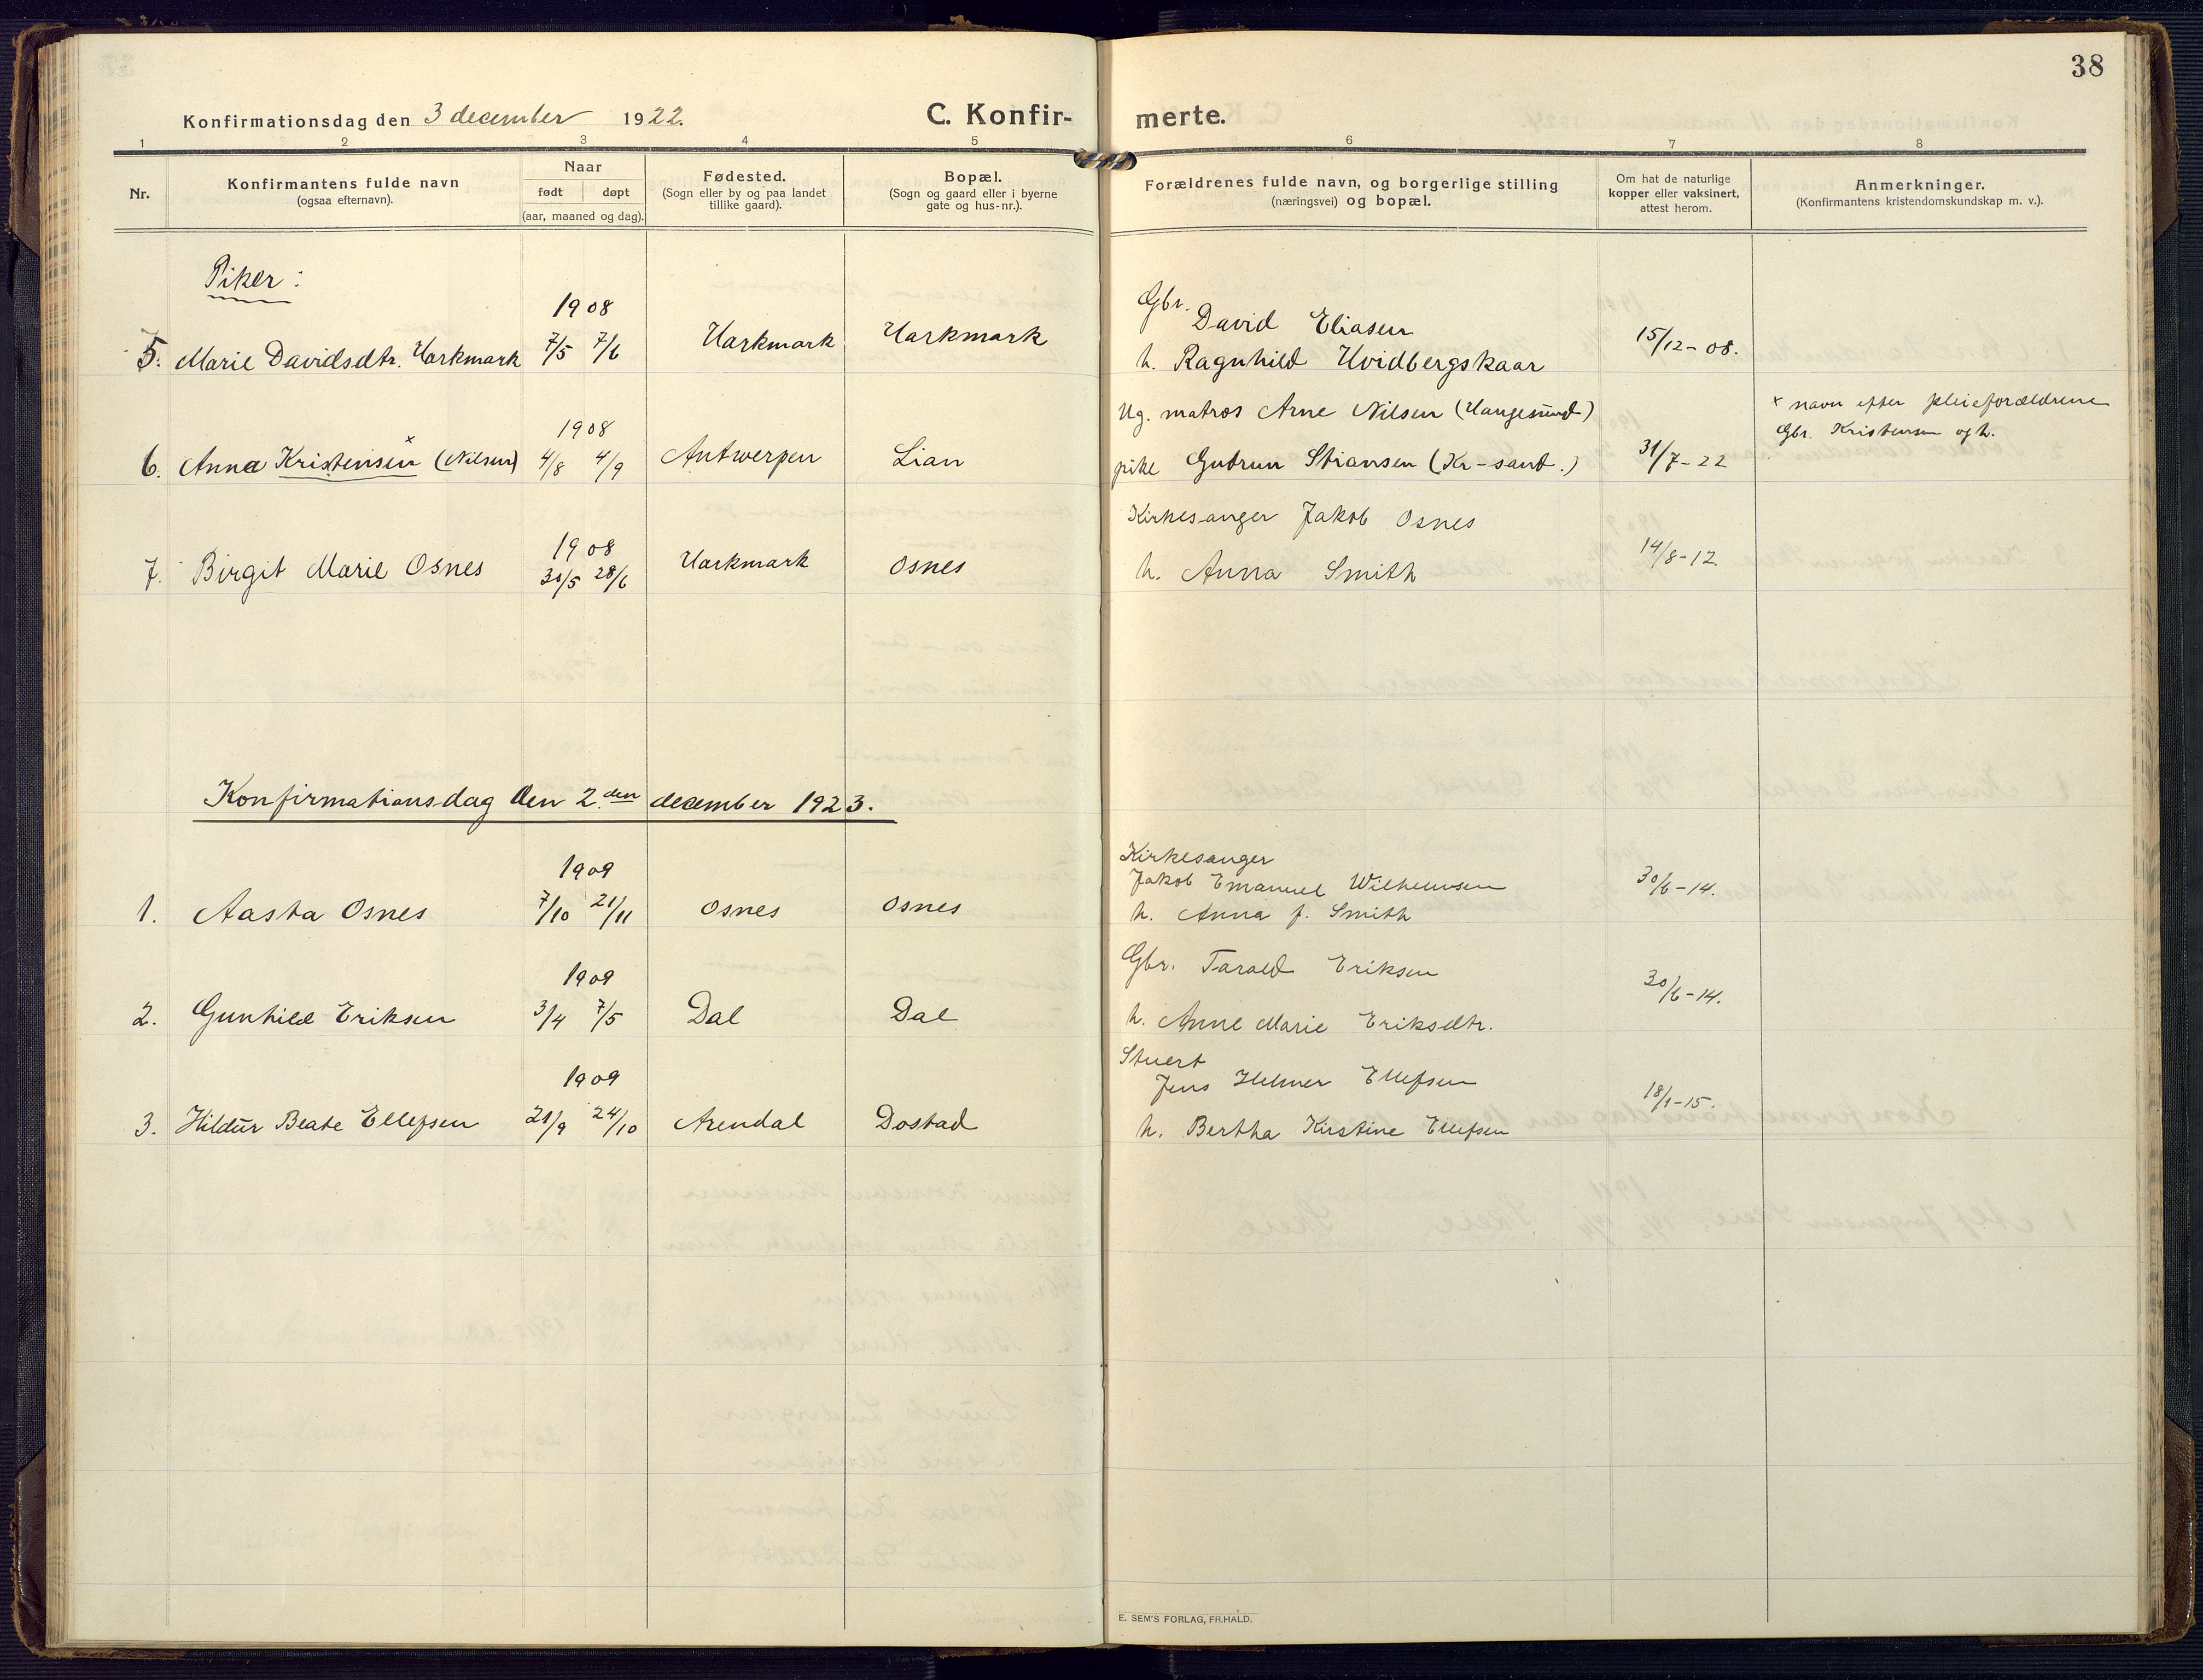 38
Konfirmationsdag den 3 december 1922.
C. Konfir-
merte.
1 2 3 4 5 6 7 8
Nr.
Konfirmantens fulde navn
(ogsaa efternavn).
Naar
født døpt
(aar, maaned og dag).
Fødested.
(Sogn eller by og paa landet
tillike gaard).
Bopæl.
(Sogn og gaard eller i byerne
gate og hus-nr.).
Forældrenes fulde navn, og borgerlige stilling
(næringsvei) og bopæl.
Om hat de naturlige
kopper eller vaksinert,
attest herom.
Anmerkninger.
(Konfirmantens kristendomskundskap m. v.).
Piker:
1908
Gbr. David Eliasen
5. Marie Davidsdtr. Harkmark 7/5 7/6 Harkmark Harkmark
h. Ragnhild Hvidbergskaar
15/12-08.
1908
Ug. matros Arne Nilsen (Haugesund)
x navn efter pleieforældrene
Gbr. Kristensen og h.
6. Anna Kristensen x (Nilsen) 4/8 4/9 Antwerpen Lian
pike Gudrun Stiansen (Kr-sand.)
31/7-22
1908
Kirkesanger Jakob Osnes
7. Birgit Marie Osnes 30/5 28/6 Harkmark Osnes
h. Anna Smith
14/8-12
Konfirmationsdag den 2.den december 1923.
1909
Kirkesanger
Jakob Emanuel Wilhelmsen
1. Aasta Osnes 7/10 21/11 Osnes Osnes
h. Anna f. Smith
30/6-14.
1909
Gbr. Tarald Eriksen
2. Gunhild Eriksen 3/4 7/5 Dal Dal
h. Anne Marie Eriksdtr.
30/6-14.
1909
Stuert
Jens Helmer Ellefsen
3. Hildur Beate Ellefsen 21/9 24/10 Arendal Dostad
h. Bertha Kirstine Ellefsen
18/1-15.
E. SEM'S FORLAG, FR.HALD.